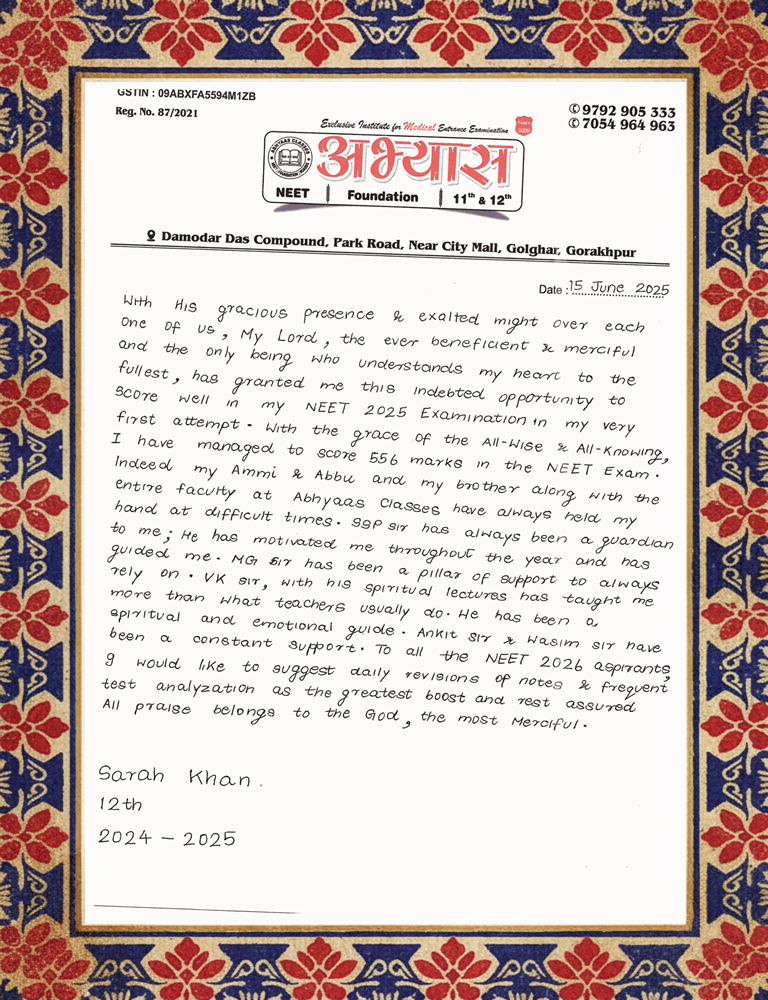 GSTIN : 09ABXFA5594M1ZB
Reg. No. 87/2021
9792 905 333
7054 964 963
Exclusive Institute for Medical Entrance Examination
Since 2020
ABHYAAS CLASSES
अभ्यास
NEET | Foundation | 11th & 12th
Damodar Das Compound, Park Road, Near City Mall, Golghar, Gorakhpur
Date : 15 June 2025
With His gracious presence & exalted might over each
one of us, My Lord, the ever beneficient & merciful
and the only being who understands my heart to the
fullest, has granted me this indebted opportunity to
score well in my NEET 2025 Examination in my very
first attempt. With the grace of the All-Wise & All-Knowing,
I have managed to score 556 marks in the NEET Exam.
Indeed my Ammi & Abbu and my brother along with the
entire faculty at Abhyaas Classes have always held my
hand at difficult times. SSP sir has always been a guardian
to me; He has motivated me throughout the year and has
guided me. MG sir has been a pillar of support to always
rely on. VK sir, with his spiritual lectures has taught me
more than what teachers usually do. He has been a
spiritual and emotional guide. Ankit sir & Wasim sir have
been a constant support. To all the NEET 2026 aspirants,
I would like to suggest daily revisions of notes & frequent
test analyzation as the greatest boost and rest assured
All praise belongs to the God, the most Merciful.
Sarah Khan.
12th
2024 - 2025